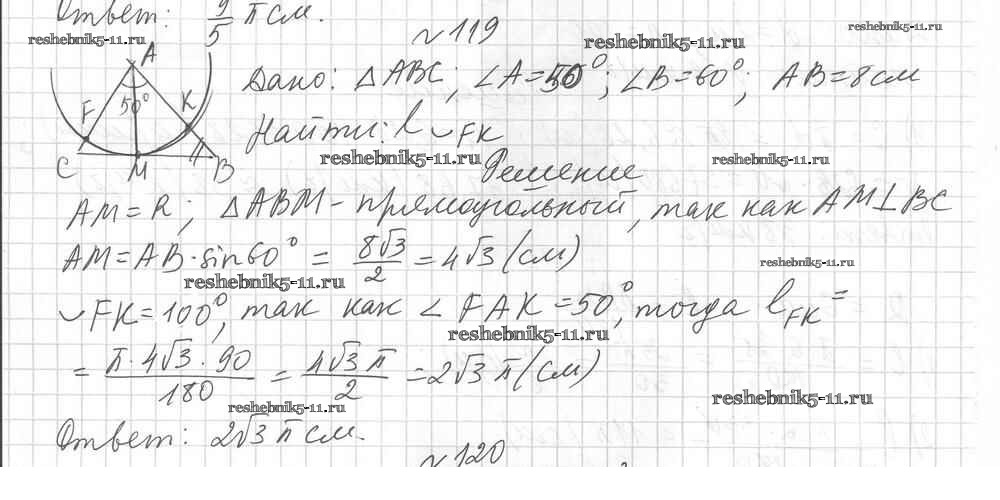 Ответ: 9/5 π см.
reshebnik5-11.ru
№119
reshebnik5-11.ru
reshebnik5-11.ru
A
F
50°
K
C
M
B
Дано: △ABC; ∠A=50°; ∠B=60°; AB=8см
Найти: l ◡FK
reshebnik5-11.ru
reshebnik5-11.ru
Решение
AM=R; △ABM-прямоугольный, так как AM⊥BC
AM=AB·sin60° = 8√3/2 = 4√3 (см)
reshebnik5-11.ru
reshebnik5-11.ru
◡FK=100°, так как ∠FAK=50°, тогда l FK =
reshebnik5-11.ru
= π·4√3·90/180 = 4√3 π/2 = 2√3 π (см)
reshebnik5-11.ru
reshebnik5-11.ru
Ответ: 2√3 π см.
№120